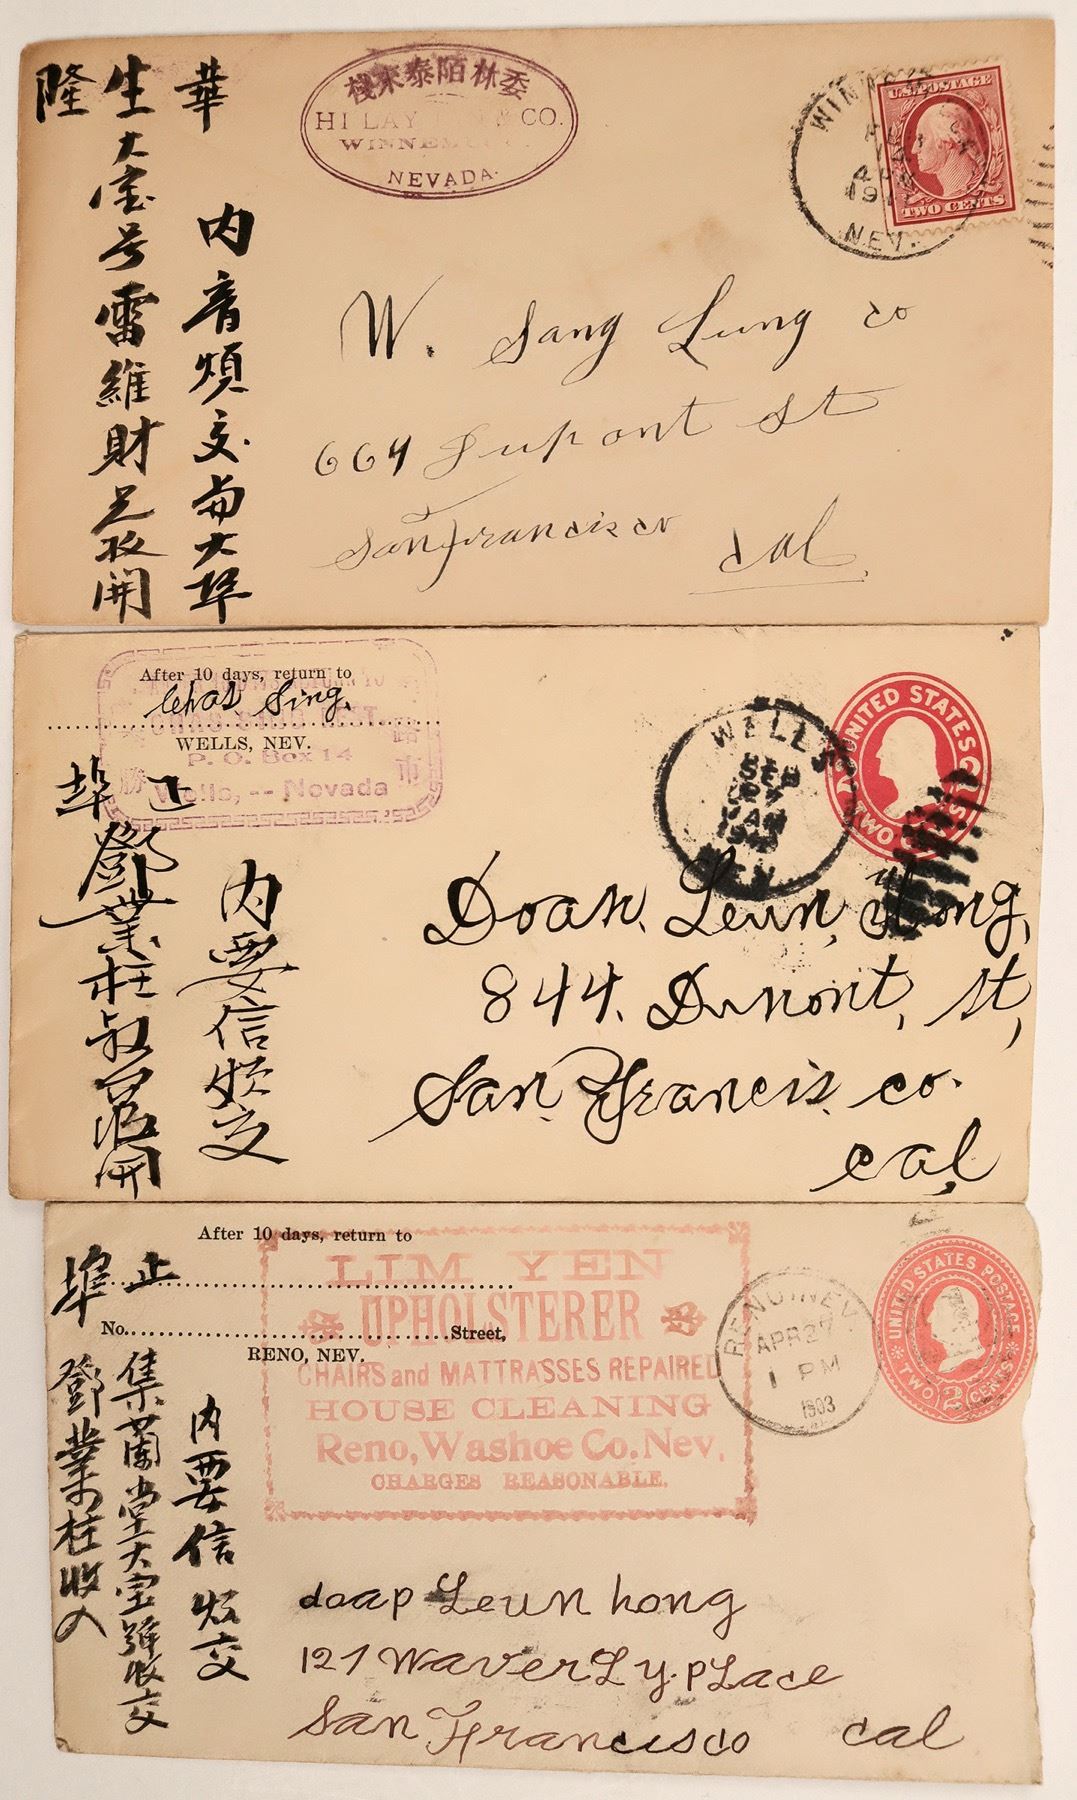 華
內音煩交南大埠
生大宝号雷維財兄收開
隆
委林陌泰來棧
HI LAY & CO.
WINNEM
NEVADA.
U.S. POSTAGE
TWO CENTS
NEV.
W. Sang Lung co
664 Dupont St
San Francisco
Cal.
After 10 days, return to
Chas Sing.
WELLS, NEV.
P. O. Box 14
Wells, -- Nevada
勝
市
WELLS
SEP
27
AM
UNITED STATES
TWO CENTS
正
埠
內要信煩交
鄧業柱叔台啟開
Doan. Leun, Hong,
844. Dunont, St,
San. Francis. co.
cal,
After 10 days, return to
No. Street,
RENO, NEV.
LIM YEN
UPHOLSTERER
CHAIRS and MATTRASSES REPAIRED
HOUSE CLEANING
Reno, Washoe Co. Nev.
CHARGES REASONABLE.
RENO, NEV.
APR 27
1 PM
1903
UNITED STATES POSTAGE
TWO 2 CENTS
正
埠
內要信煩交
集蘭堂大宝號收交
鄧業柱收入
doap Leun hong
127 WaverLy. pLace
San Francisco cal